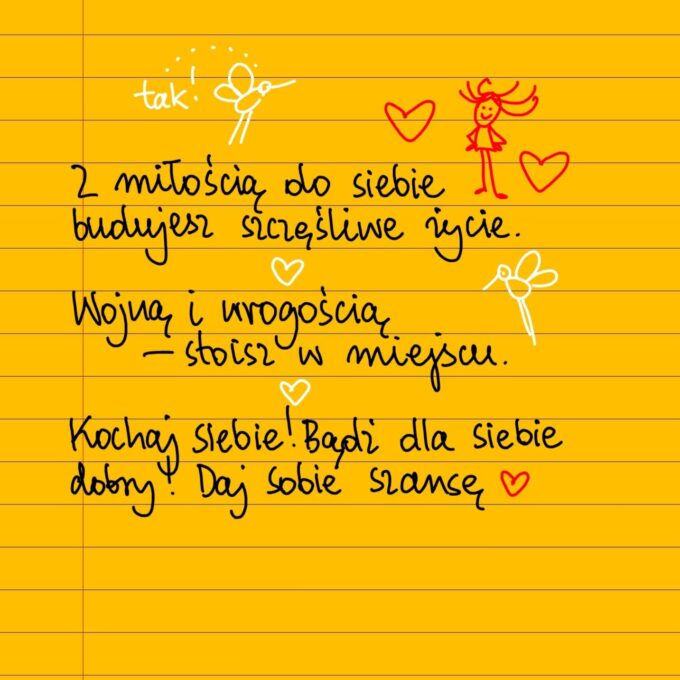 tak!
Z miłością do siebie
budujesz szczęśliwe życie.
Wojną i wrogością
– stoisz w miejscu.
Kochaj siebie! Bądź dla siebie
dobry! Daj sobie szansę